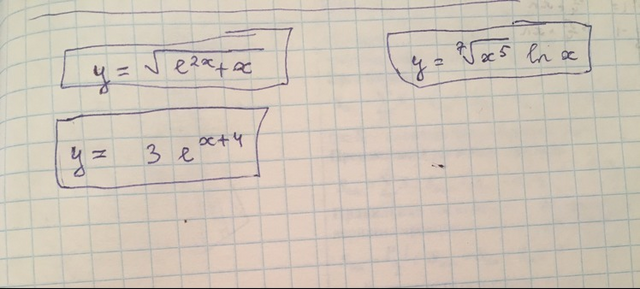 y = √(e^{2x}+x)
y = ⁷√(x⁵) ln x
y = 3 e^{x+4}